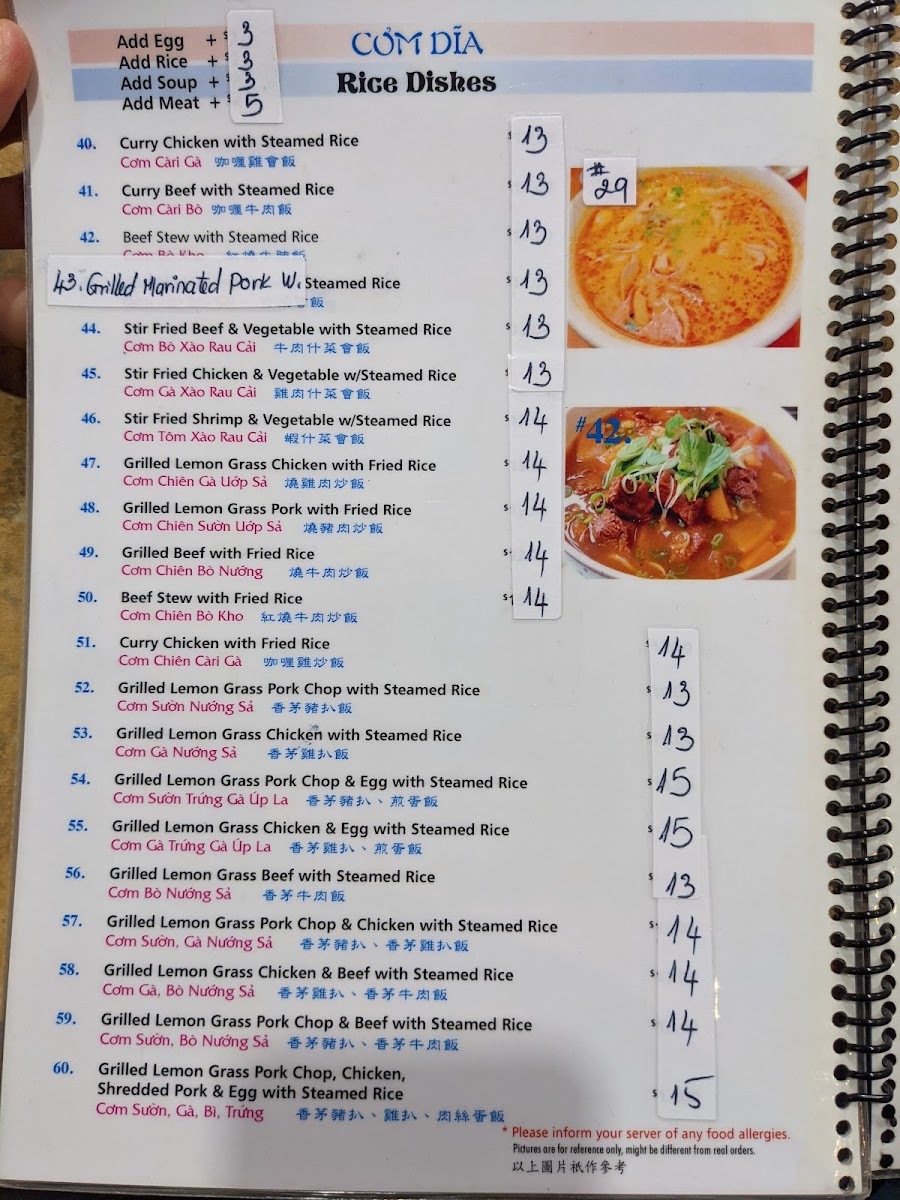 Add Egg + $ 3
Add Rice + $ 3
Add Soup + $ 3
Add Meat + $ 5
CƠM DĨA
Rice Dishes
40. Curry Chicken with Steamed Rice $ 13
Cơm Càri Gà 咖喱雞會飯
41. Curry Beef with Steamed Rice $ 13
Cơm Càri Bò 咖喱牛肉飯
42. Beef Stew with Steamed Rice $ 13
Cơm Bò Kho
43. Grilled Marinated Pork W. Steamed Rice $ 13
飯
44. Stir Fried Beef & Vegetable with Steamed Rice $ 13
Cơm Bò Xào Rau Cải 牛肉什菜會飯
45. Stir Fried Chicken & Vegetable w/Steamed Rice $ 13
Cơm Gà Xào Rau Cải 雞肉什菜會飯
46. Stir Fried Shrimp & Vegetable w/Steamed Rice $ 14
Cơm Tôm Xào Rau Cải 蝦什菜會飯
47. Grilled Lemon Grass Chicken with Fried Rice $ 14
Cơm Chiên Gà Uớp Sả 燒雞肉炒飯
48. Grilled Lemon Grass Pork with Fried Rice $ 14
Cơm Chiên Sườn Uớp Sả 燒豬肉炒飯
49. Grilled Beef with Fried Rice $ 14
Cơm Chiên Bò Nướng 燒牛肉炒飯
50. Beef Stew with Fried Rice $ 14
Cơm Chiên Bò Kho 紅燒牛肉炒飯
51. Curry Chicken with Fried Rice $ 14
Cơm Chiên Càri Gà 咖喱雞炒飯
52. Grilled Lemon Grass Pork Chop with Steamed Rice $ 13
Cơm Sườn Nướng Sả 香茅豬扒飯
53. Grilled Lemon Grass Chicken with Steamed Rice $ 13
Cơm Gà Nướng Sả 香茅雞扒飯
54. Grilled Lemon Grass Pork Chop & Egg with Steamed Rice $ 15
Cơm Sườn Trứng Gà Úp La 香茅豬扒、煎蛋飯
55. Grilled Lemon Grass Chicken & Egg with Steamed Rice $ 15
Cơm Gà Trứng Gà Úp La 香茅雞扒、煎蛋飯
56. Grilled Lemon Grass Beef with Steamed Rice $ 13
Cơm Bò Nướng Sả 香茅牛肉飯
57. Grilled Lemon Grass Pork Chop & Chicken with Steamed Rice $ 14
Cơm Sườn, Gà Nướng Sả 香茅豬扒、香茅雞扒飯
58. Grilled Lemon Grass Chicken & Beef with Steamed Rice $ 14
Cơm Gà, Bò Nướng Sả 香茅雞扒、香茅牛肉飯
59. Grilled Lemon Grass Pork Chop & Beef with Steamed Rice $ 14
Cơm Sườn, Bò Nướng Sả 香茅豬扒、香茅牛肉飯
60. Grilled Lemon Grass Pork Chop, Chicken,
Shredded Pork & Egg with Steamed Rice $ 15
Cơm Sườn, Gà, Bì, Trứng 香茅豬扒、雞扒、肉絲蛋飯
#29
#42.
* Please inform your server of any food allergies.
Pictures are for reference only, might be different from real orders.
以上圖片祇作參考